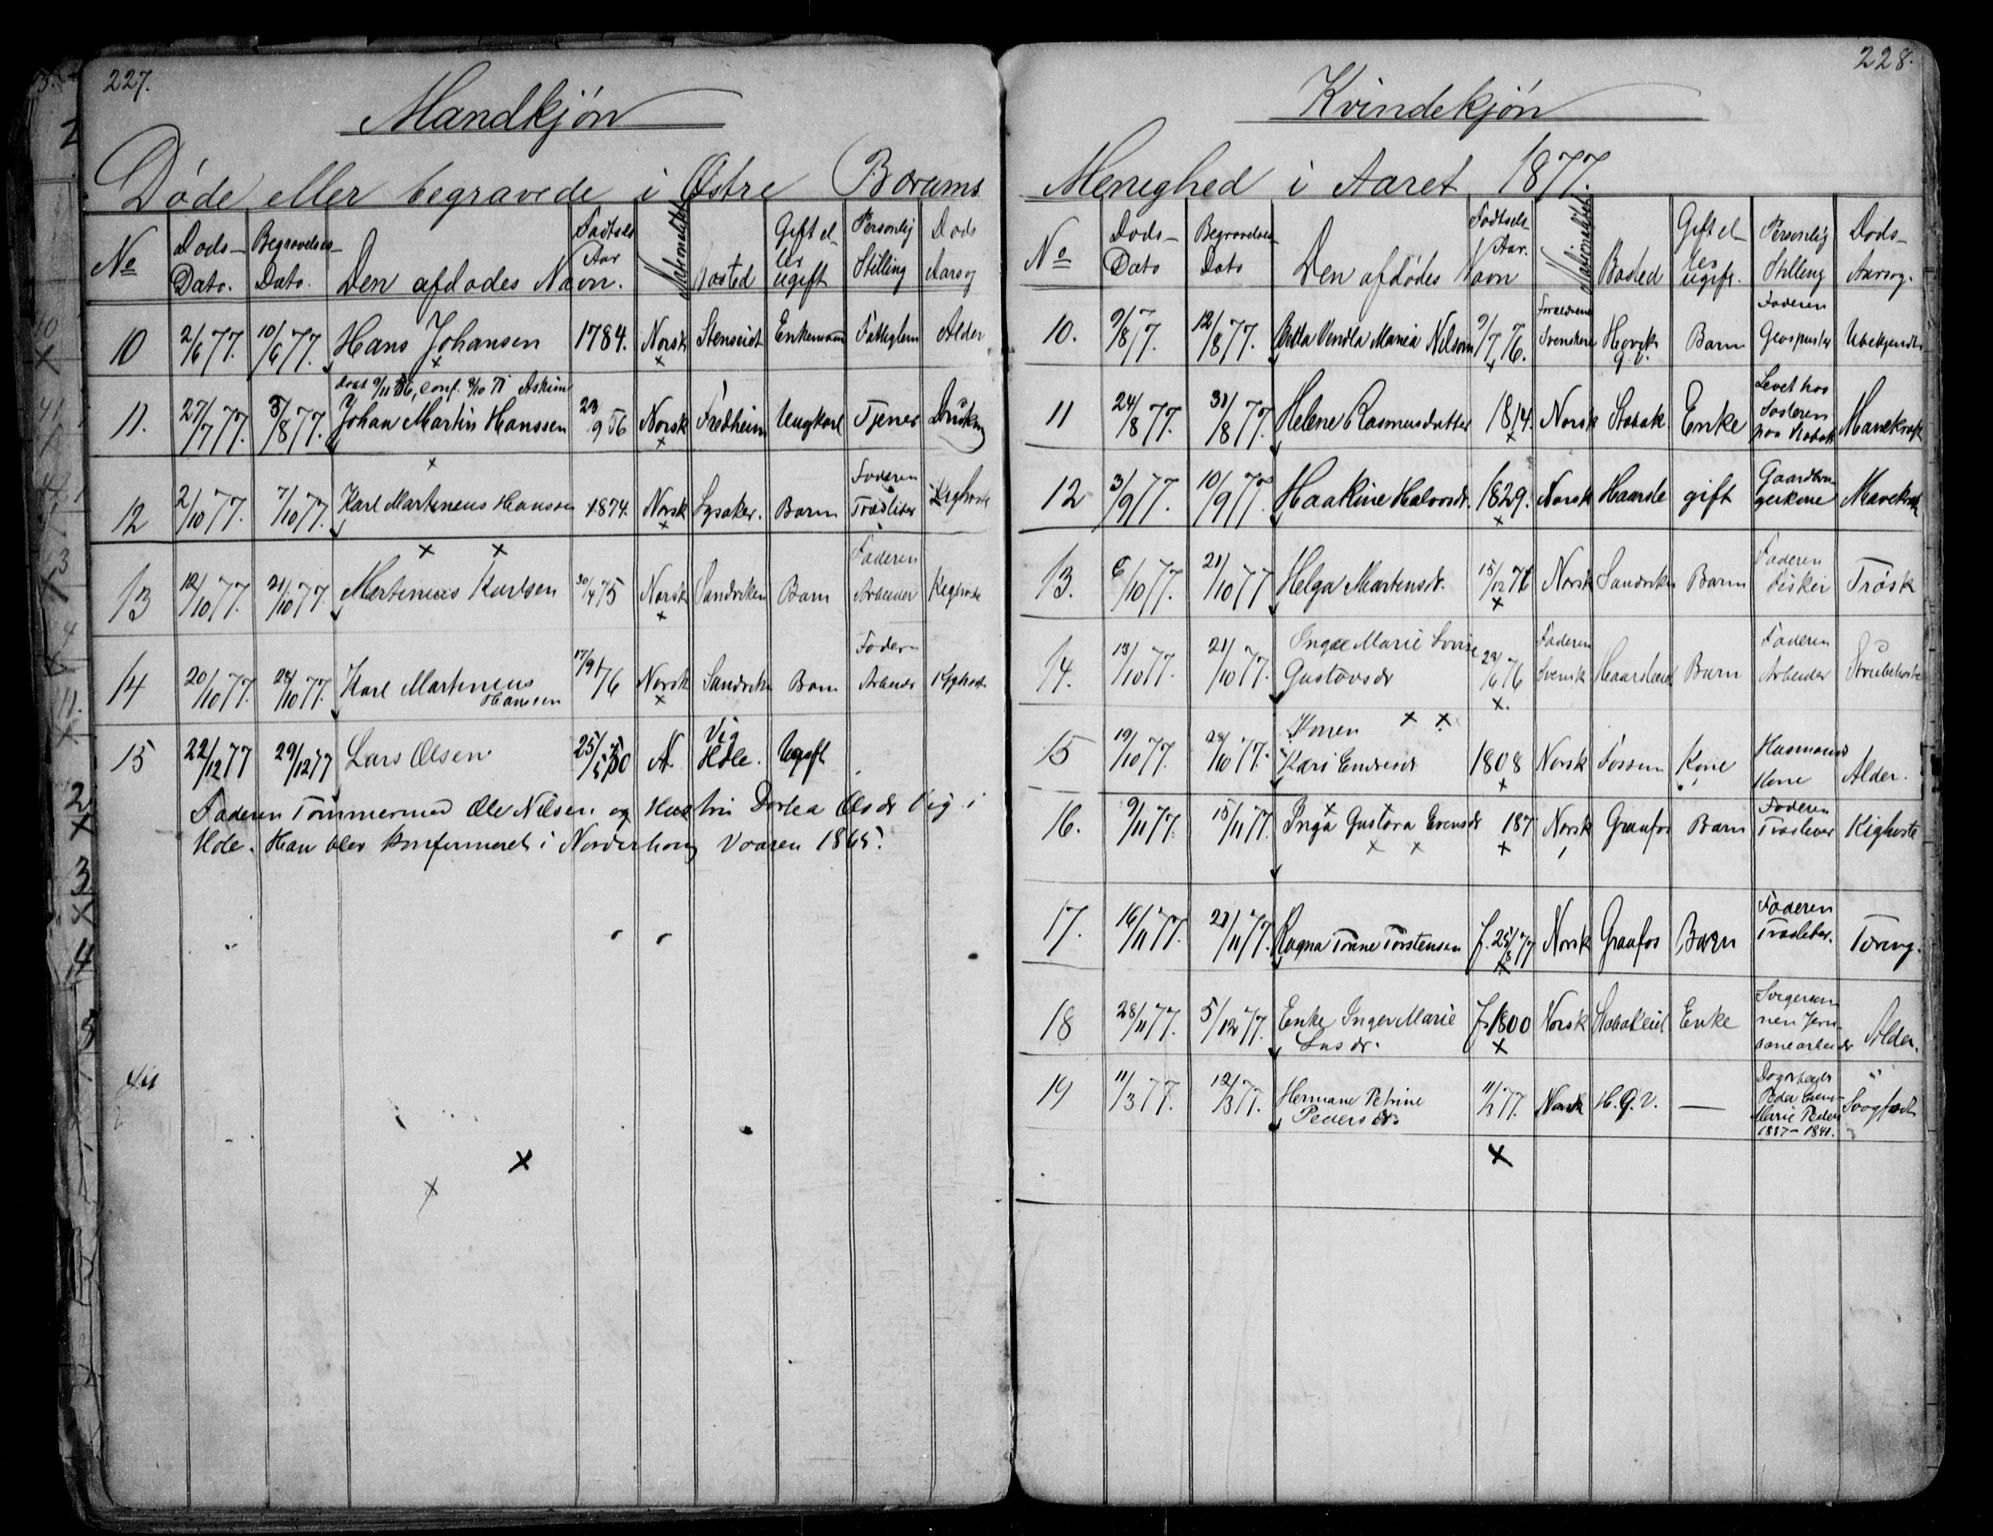 227.
Mandkjøn
Døde eller begravede i Østre Bærums
No Døds-Dato. Begravelses-Dato. Den afdødes Navn. Fødsels Aar Nationalitet Bosted Gift eller ugift Personlig Stilling Døds Aarsag
10 2/6 77. 10/6 77. Hans Johansen 1784. Norsk Enkemand Alder
11. 27/7 77. 3/8 77. Johan Martin Hanssen 23/9 56 Norsk Fredheim Ungkarl Tjener
12 2/10 77. 7/10 77. Karl Martineus Hanssen 1874. Norsk Lysaker. Barn Faderen Kighoste
13 12/10 77. 21/10 77. Martineus Karlsen 30/4 75 Norsk Sandviken Barn Faderen Arbeider Kighoste
14 20/10 77. 28/10 77. Karl Martineus Hanssen 17/9 76 Norsk Sandviken Barn Fader Arbeider Kighoste
15 22/12 77 29/12 77 Lars Olsen 25/5 50 N. Vig Hole. Ugift
Faderen Tømmermed Ole Nilsen og Hustru Dorthea Olsdr Vig i
Hole. Han blev konfirmeret i Norderhoug Vaaren 1865.
228.
Kvindekjøn
Menighed i Aaret 1877.
No Døds-Dato Begravelses-Dato Den afdødes Navn Fødsels-Aar. Nationalitet Bosted Gift eller ugift. Personlig Stilling Døds-Aarsag.
10. 9/8 77. 12/8 77. Maria Nelson 9/7 76. Forældrene Svenske Høvik G.V. Barn Faderen Glaspuster Ubekjendt
11 24/8 77. 31/8 77. Helene Rasmusdatter 1814. Norsk Stabæk. Enke Levet hos
12 3/9 77. 10/9 77. Haakine Halvorsdr. 1829. Norsk gift
13. 6/10 77. 21/10 77 Helga Martensdr. 15/12 76 Norsk Sandviken Barn Faderen Fisker Trøsk
14. 13/10 77. 21/10 77. Inga Marie Lovise Gustavsdr 28/6 76 Faderen Svensk Barn Faderen Arbeider Strubehoste
15 19/10 77. 28/10 77. Konen Kari Endresdr 1808 Norsk Fossum Kone Husmands Kone Alder.
16. 9/11 77. 15/11 77. Inga Gustava Evensdr 187 Norsk Granfos Barn Faderen Kighoste
17. 16/11 77. 21/11 77. Ragna Trine Torstensen f. 25/8 77 Norsk Granfos Barn Faderen Træsliber. Tæring.
18 28/11 77. 5/12 77. Enke Inger Marie Larsdr. f. 1800 Norsk Enke Svigersønnen Jernbanearbeider Alder.
19 11/3 77. 12/3 77. Hermane Petrine Pedersdr. 11/3 77. Norsk H.G.V. — Marie Peders 1837–1841. Svagfødt